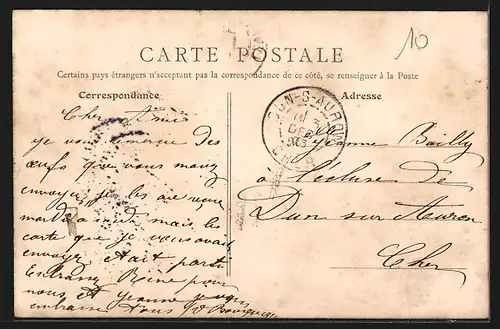 10
CARTE POSTALE
Certains pays étrangers n'acceptant pas la correspondance de ce côté, se renseigner à la Poste
Correspondance
Cher Amie
je vous remercie des
œufs que vous mavez
envoyer je les ai reçue
mardi a midi mais les
carte que je vous avais
envoyer était parti
Embrassez Reine pour
nous et Jeanne
embrasse tous
Adresse
DUN-S-AURON
DEC
CHER
Jeanne Bailly
à l'écluse de
Dun sur Auron
Cher